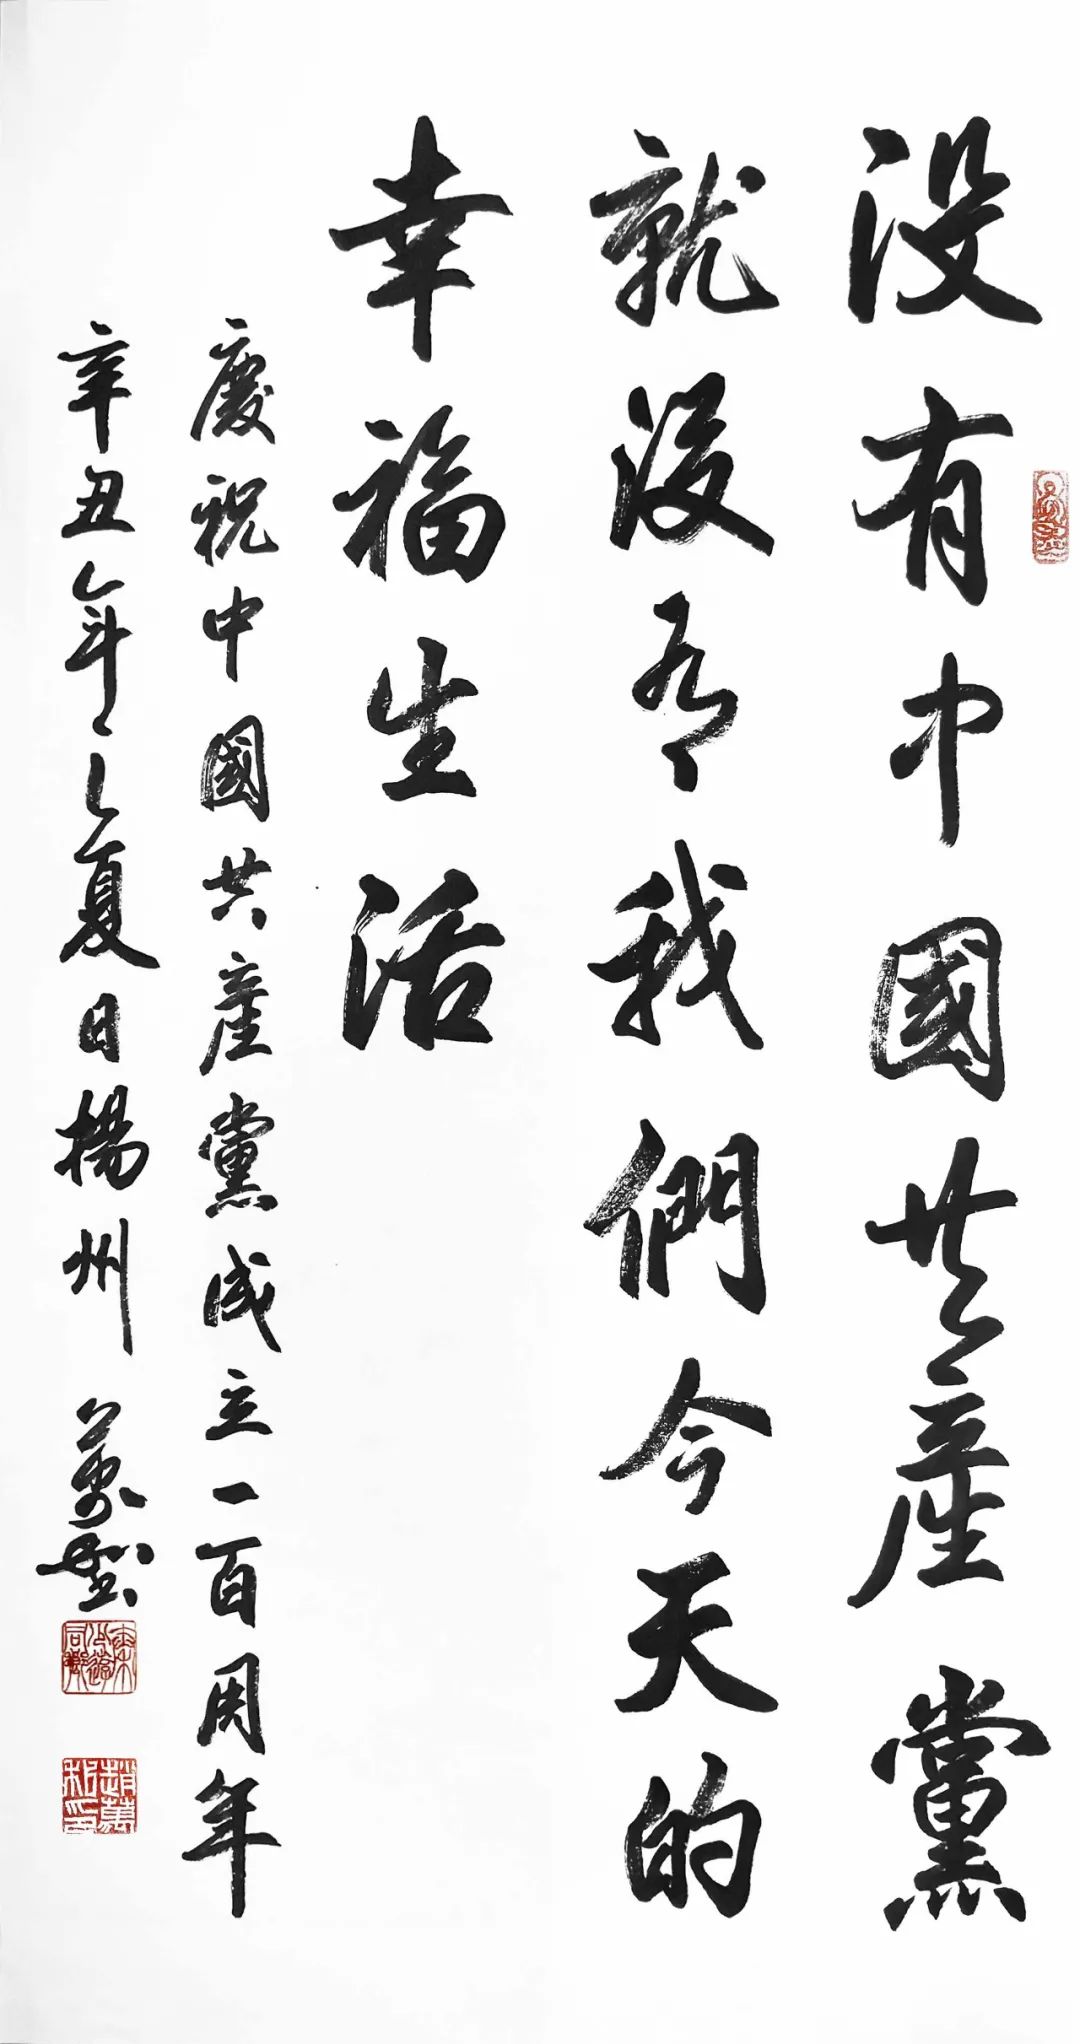 没有中國共產黨
就没有我們今天的
幸福生活
慶祝中國共產黨成立一百周年
辛丑年之夏日揚州